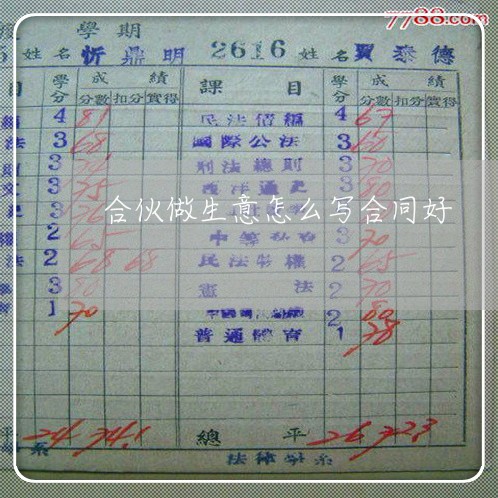 7788.com
學期
5 姓名 忻鼎明 2616 姓名 賈泰德
目 學分 成績 分數 扣分 實得 課目 學分 成績 分數 扣分 實得
4 81 民法債編 4 67
法 3 68 國際公法 3 60
3 刑法總則 3 70
3 75 3 80
3
合伙做生意怎么写合同好
權 2 65 3 70
法 2 68 68 民法物權 2 65
3 80 憲法 2 70
1 70 2 80
普通體育 1 78
平 24 74.1 總平 26 72.3
系 法律學系